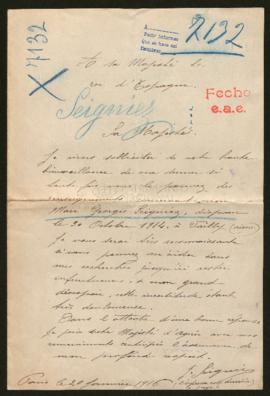 X 7132
A
Pedir informes
2132
A sa Majesté le
roi d'Espagne.
Fecho
e.a.e.
Seignier
Sa Majesté.
Je viens solliciter de votre haute
bienveillance de me donner si
toutefois vous le pouvez des
renseignements concernant mon
Mari Georges Seignier, disparu
le 30 Octobre 1914, à Vailly (Aisne)
Je vous serai très reconnaissante
si vous pouvez m'aider dans
mes recherches jusqu'ici restées
infructueuses, à mon grand
désespoir, cette incertitude étant
très douloureuse.
Dans l'attente d'une bonne réponse
Je prie votre Majesté d'agréer avec mes
remerciements anticipés l'assurance de
mon profond respect.
J. Seignier
Paris le 20 Janvier 1916